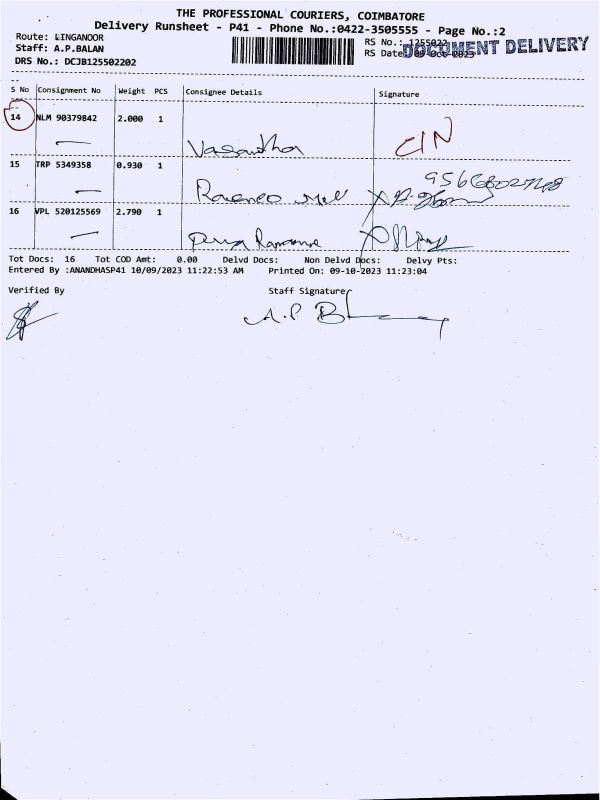 THE PROFESSIONAL COURIERS, COIMBATORE
Delivery Runsheet - P41 - Phone No.:0422-3505555 - Page No.:2
Route: LINGANOOR
RS No.: 1255022
DOCUMENT DELIVERY
Staff: A.P.BALAN
RS Date: 09-Oct-2023
DRS No.: DCJB125502202
S No Consignment No Weight PCS Consignee Details Signature
14 NLM 90379842 2.000 1
Vasantha
CIN
15 TRP 5349358 0.930 1
16 VPL 520125569 2.790 1
Tot Docs: 16 Tot COD Amt: 0.00 Delvd Docs: Non Delvd Docs: Delvy Pts:
Entered By :ANANDHASP41 10/09/2023 11:22:53 AM Printed On: 09-10-2023 11:23:04
Verified By Staff Signature
A.P B